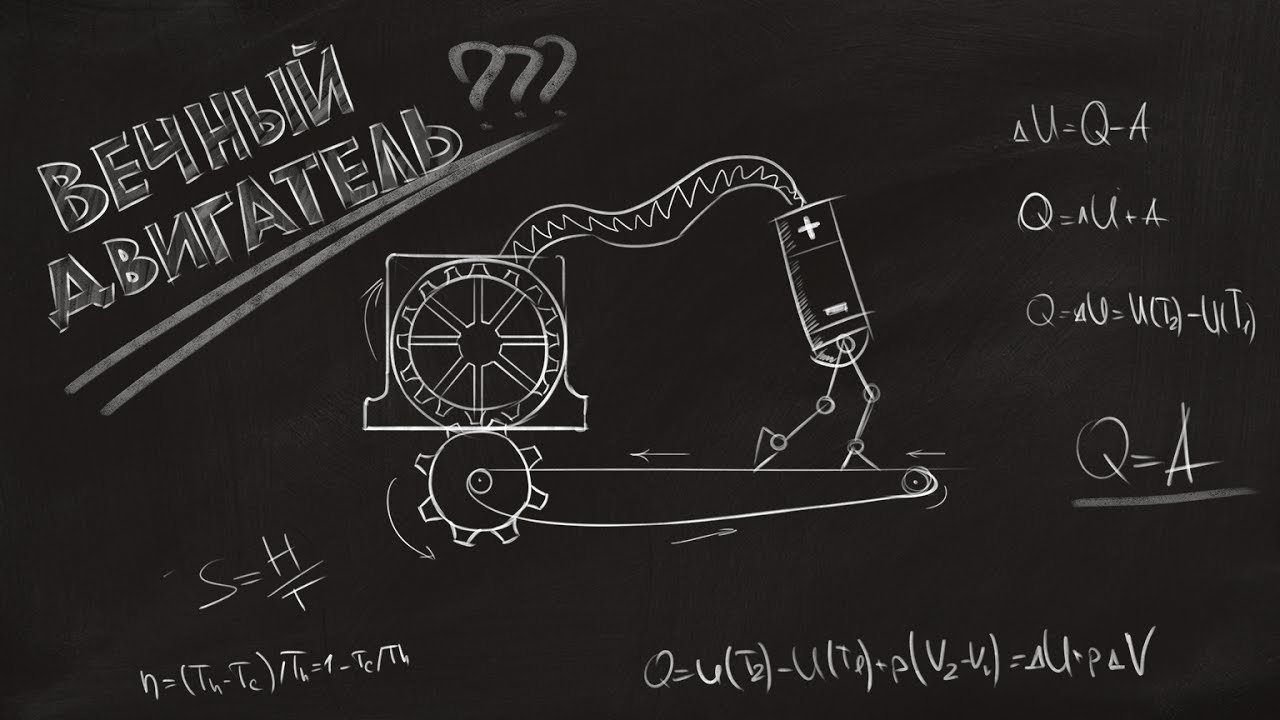 ВЕЧНЫЙ
ДВИГАТЕЛЬ ???
ΔU=Q-A
Q=ΔU+A
Q=ΔU=U(T₂)-U(T₁)
Q=A
+
-
S=H/T
η=(Th-Tc)/Th=1-Tc/Th
Q=U(T₂)-U(T₁)+p(V₂-V₁)=ΔU+pΔV